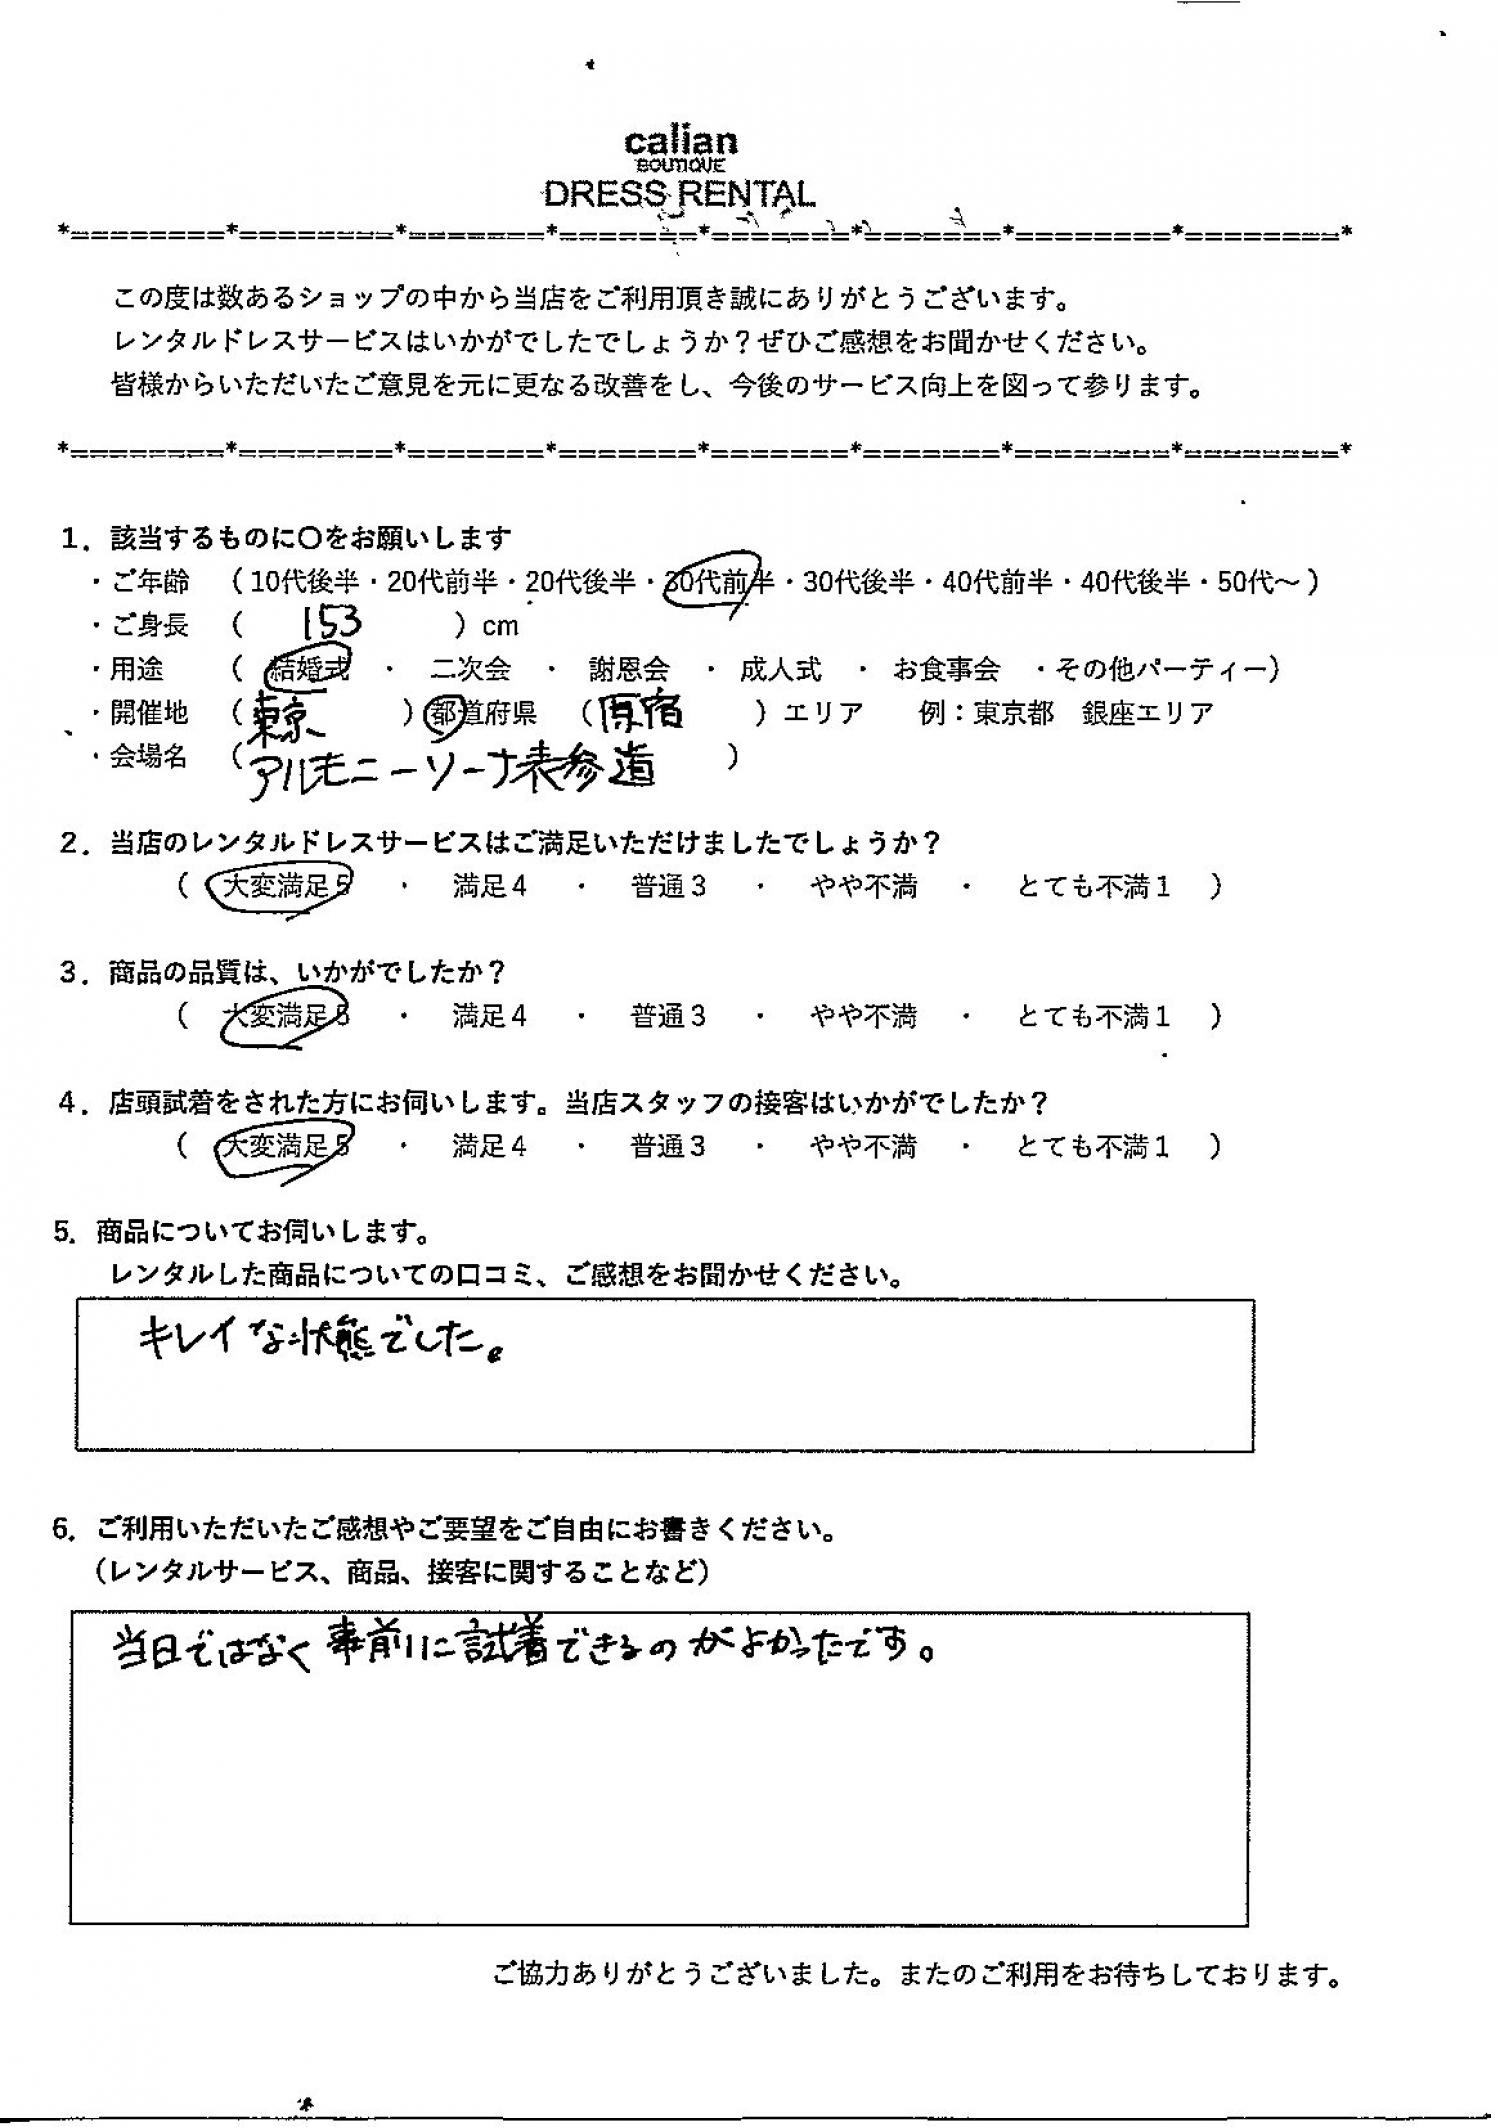 calian
BOUTIQUE
DRESS RENTAL
*========*========*=======*=======*=======*=======*========*========*
この度は数あるショップの中から当店をご利用頂き誠にありがとうございます。
レンタルドレスサービスはいかがでしたでしょうか？ぜひご感想をお聞かせください。
皆様からいただいたご意見を元に更なる改善をし、今後のサービス向上を図って参ります。
*========*========*=======*=======*=======*=======*========*========*
1．該当するものに〇をお願いします
・ご年齢 （10代後半・20代前半・20代後半・30代前半・30代後半・40代前半・40代後半・50代～）
・ご身長 （ 153 ）cm
・用途 （ 結婚式 ・ 二次会 ・ 謝恩会 ・ 成人式 ・ お食事会 ・その他パーティー）
・開催地 （ 東京 ）都道府県 （ 原宿 ）エリア 例：東京都 銀座エリア
・会場名 （ アルモニーソーナ表参道 ）
2．当店のレンタルドレスサービスはご満足いただけましたでしょうか？
（ 大変満足5 ・ 満足4 ・ 普通3 ・ やや不満 ・ とても不満1 ）
3．商品の品質は、いかがでしたか？
（ 大変満足5 ・ 満足4 ・ 普通3 ・ やや不満 ・ とても不満1 ）
4．店頭試着をされた方にお伺いします。当店スタッフの接客はいかがでしたか？
（ 大変満足5 ・ 満足4 ・ 普通3 ・ やや不満 ・ とても不満1 ）
5．商品についてお伺いします。
レンタルした商品についての口コミ、ご感想をお聞かせください。
キレイな状態でした。
6．ご利用いただいたご感想やご要望をご自由にお書きください。
（レンタルサービス、商品、接客に関することなど）
当日ではなく事前に試着できるのがよかったです。
ご協力ありがとうございました。またのご利用をお待ちしております。